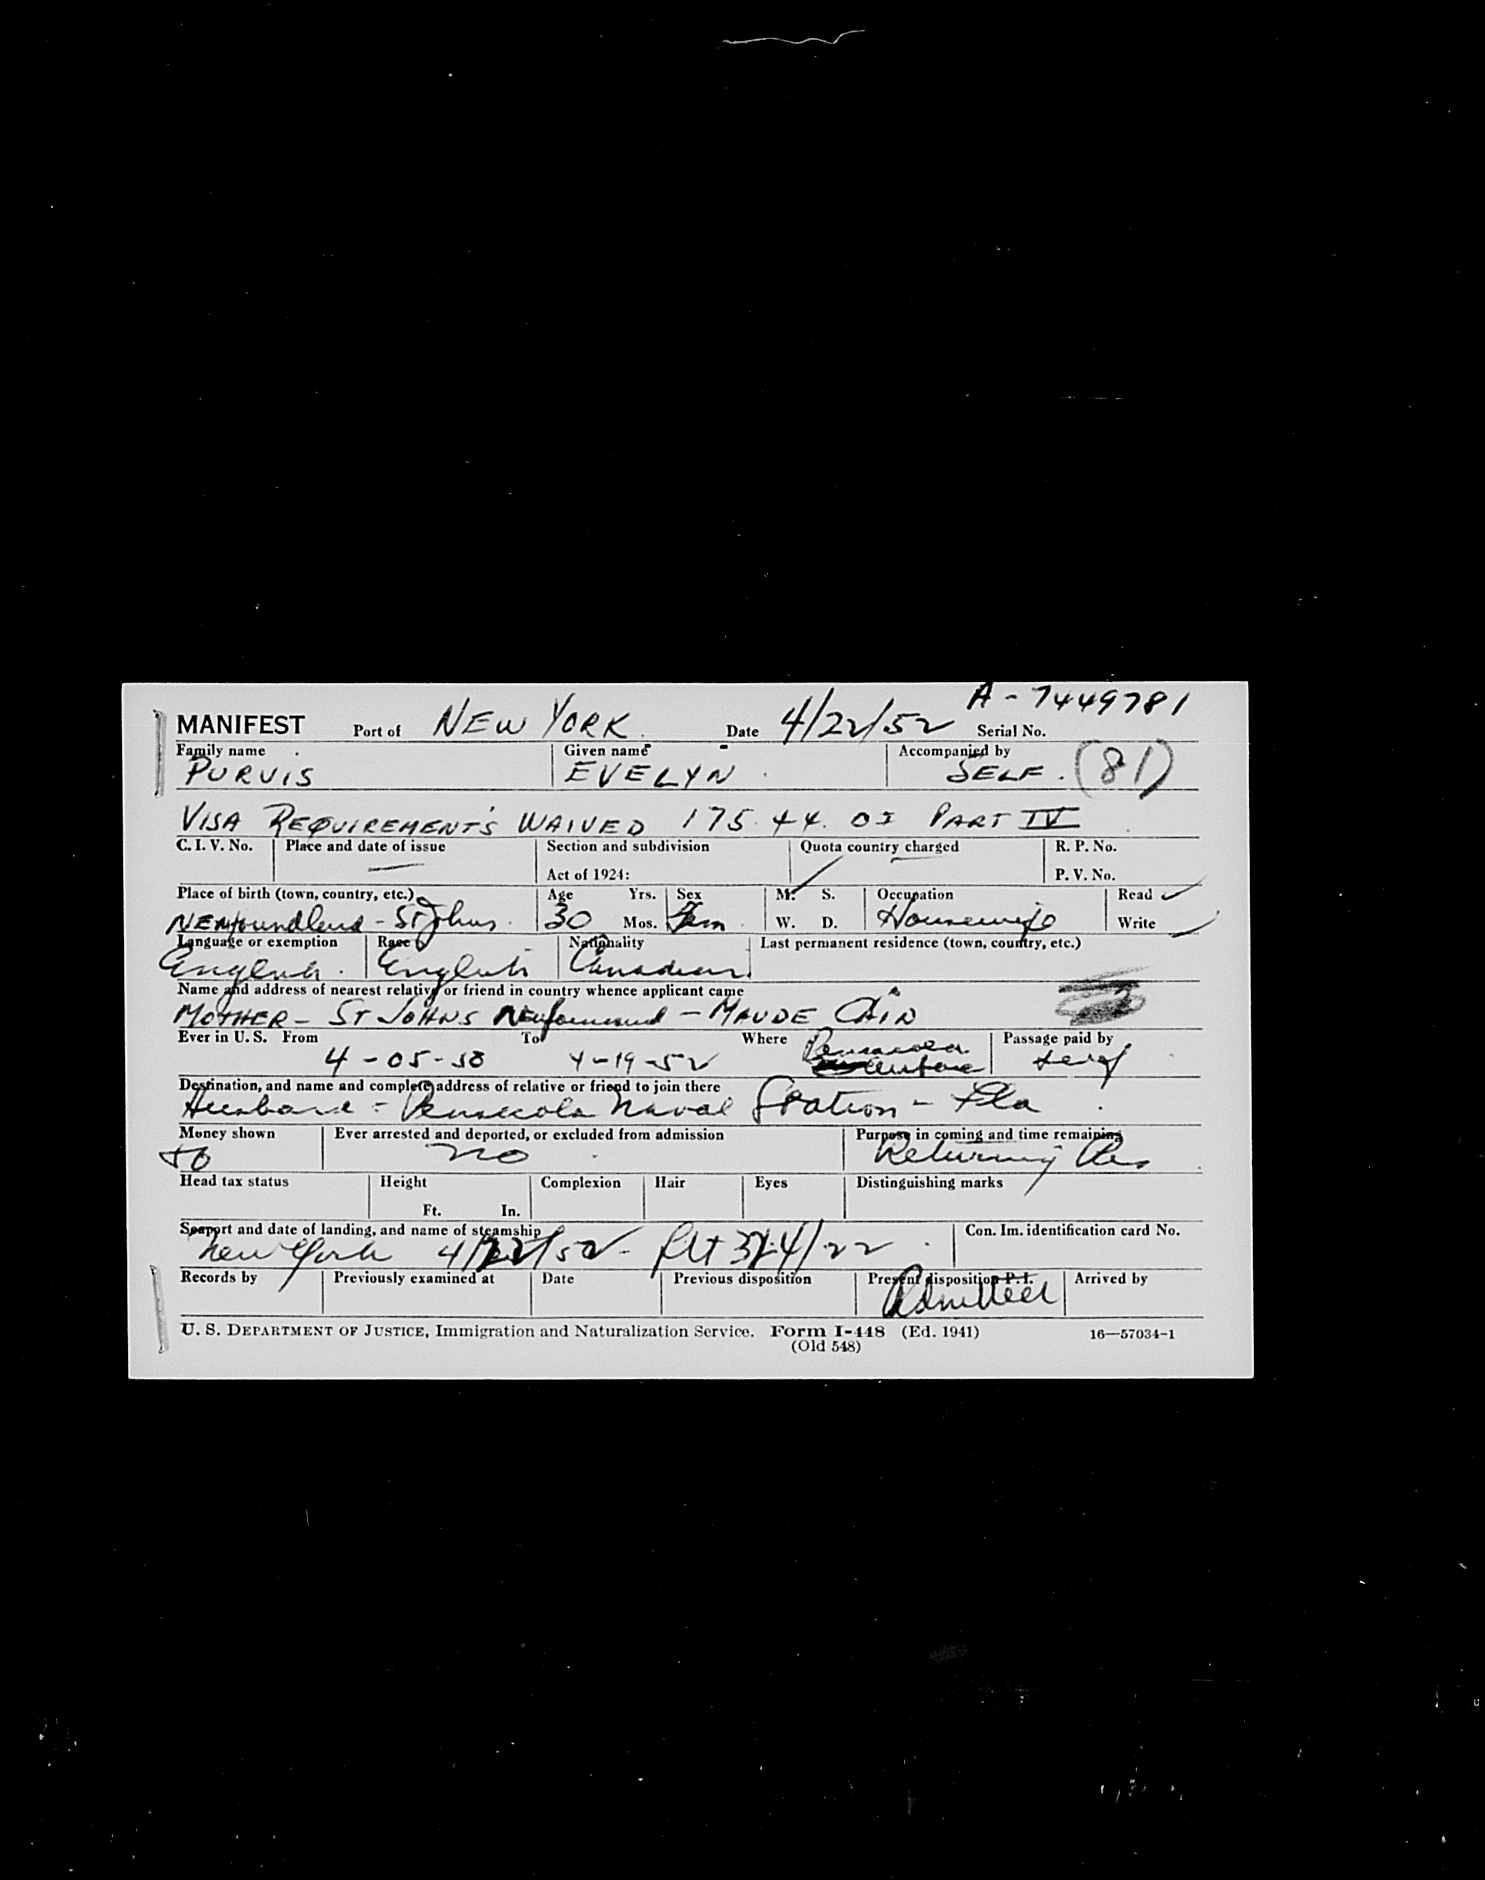 A-7449781
MANIFEST Port of NEW YORK Date 4/22/52 Serial No.
Family name Given name Accompanied by
PURVIS EVELYN SELF. (81)
VISA REQUIREMENT'S WAIVED 175.44. OI PART IV
C. I. V. No. Place and date of issue Section and subdivision Quota country charged R. P. No.
Act of 1924: P. V. No.
Place of birth (town, country, etc.) Age Yrs. Sex M. S. Occupation Read
Newfoundland - St Johns. 30 Mos. Fem W. D. Housewife Write
Language or exemption Race Nationality Last permanent residence (town, country, etc.)
English. English Canadian.
Name and address of nearest relative or friend in country whence applicant came
MOTHER - ST JOHNS Newfoundland - MAUDE CAIN
Ever in U. S. From To Where Passage paid by
4-05-50 4-19-52 Pensacola self
Destination, and name and complete address of relative or friend to join there
Husband - Pensacola Naval Station - Fla.
Money shown Ever arrested and deported, or excluded from admission Purpose in coming and time remaining
no Returning Res
Head tax status Height Complexion Hair Eyes Distinguishing marks
Ft. In.
Seaport and date of landing, and name of steamship Con. Im. identification card No.
New York 4/22/52 - flt 324/22
Records by Previously examined at Date Previous disposition Present disposition P. I. Arrived by
Admitted
U. S. DEPARTMENT OF JUSTICE, Immigration and Naturalization Service. Form I-448 (Ed. 1941) 16—57034-1
(Old 548)